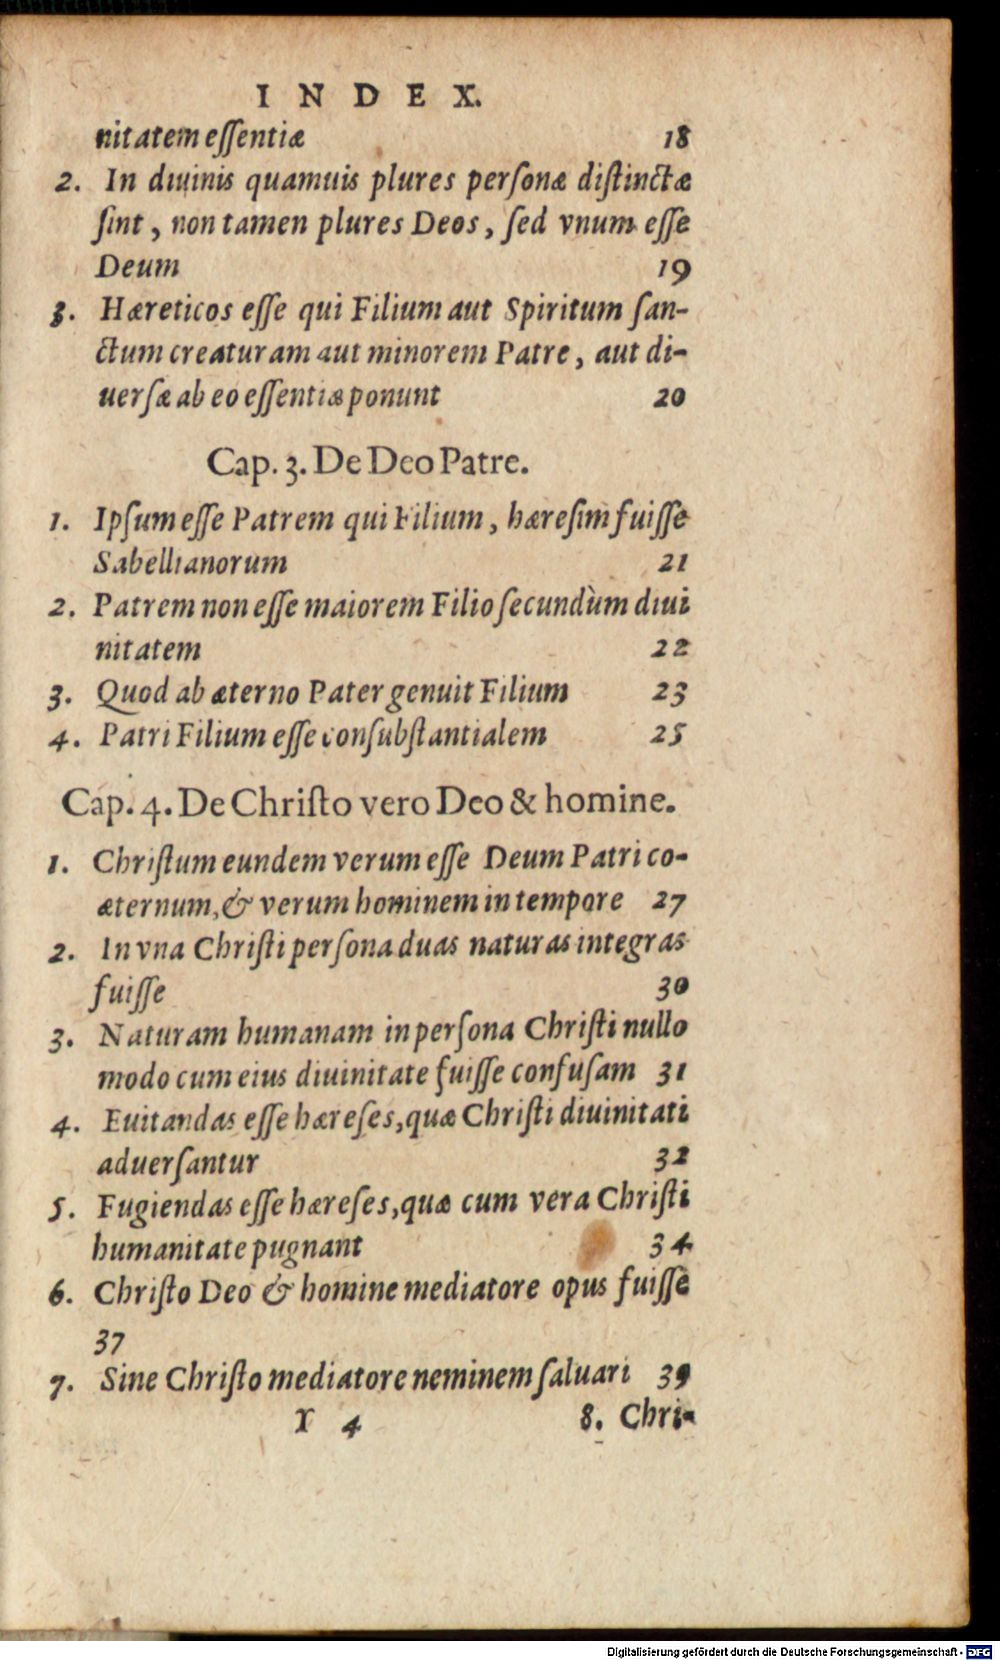 INDEX.
nitatem eſſentiæ 18
2. In diuinis quamuis plures perſonæ diſtinctæ
ſint, non tamen plures Deos, ſed vnum eſſe
Deum 19
3. Hæreticos eſſe qui Filium aut Spiritum ſan-
ctum creaturam aut minorem Patre, aut di-
uerſæ ab eo eſſentiæ ponunt 20
Cap. 3. De Deo Patre.
1. Ipſum eſſe Patrem qui Filium, hæreſim fuiſſe
Sabellianorum 21
2. Patrem non eſſe maiorem Filio ſecundùm diui
nitatem 22
3. Quod ab æterno Pater genuit Filium 23
4. Patri Filium eſſe conſubſtantialem 25
Cap. 4. De Chriſto vero Deo & homine.
1. Chriſtum eundem verum eſſe Deum Patri co-
æternum, & verum hominem in tempore 27
2. In vna Chriſti perſona duas naturas integras
fuiſſe 30
3. Naturam humanam in perſona Chriſti nullo
modo cum eius diuinitate fuiſſe confuſam 31
4. Euitandas eſſe hæreſes, quæ Chriſti diuinitati
aduerſantur 32
5. Fugiendas eſſe hæreſes, quæ cum vera Chriſti
humanitate pugnant 34
6. Chriſto Deo & homine mediatore opus fuiſſe
37
7. Sine Chriſto mediatore neminem ſaluari 39
Y 4 8. Chri-
Digitalisierung gefördert durch die Deutsche Forschungsgemeinschaft - DFG